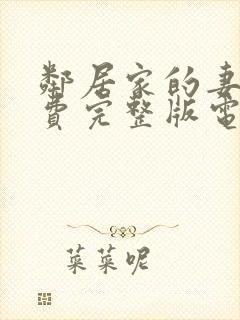 鄰居家的妻
費完整版電
菜菜呢